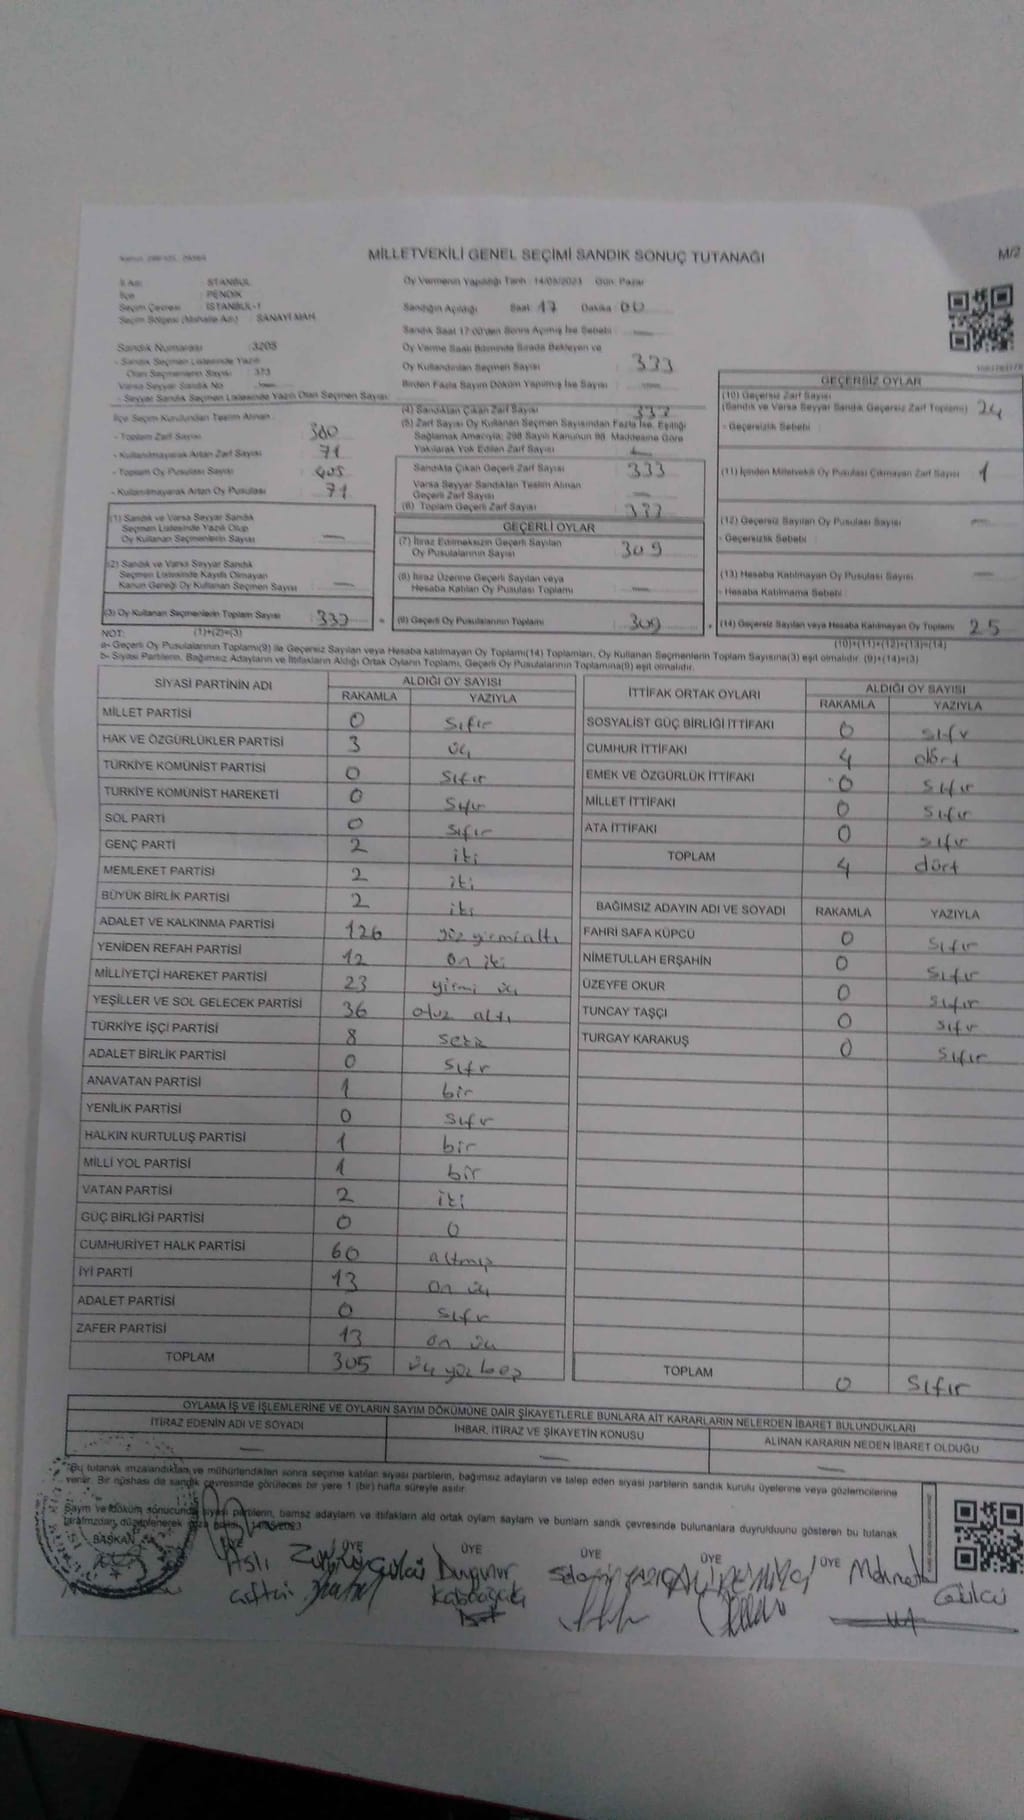 MİLLETVEKİLİ GENEL SEÇİMİ SANDIK SONUÇ TUTANAĞI
M/2
İl Adı : İSTANBUL
İlçe : PENDİK
Seçim Çevresi : İSTANBUL-1
Seçim Bölgesi (Mahalle Adı) : SANAYİ MAH.
Oy Vermenin Yapıldığı Tarih : 14/05/2023 Gün: Pazar
Sandığın Açıldığı Saat 17 Dakika 00
Sandık Saat 17:00'den Sonra Açılmış İse Sebebi : —
Sandık Numarası : 3205
- Sandık Seçmen Listesinde Yazılı
Olan Seçmenlerin Sayısı : 373
Varsa Seyyar Sandık No : —
- Seyyar Sandık Seçmen Listesinde Yazılı Olan Seçmen Sayısı :
Oy Verme Saati Bitiminde Sırada Bekleyen ve
Oy Kullandırılan Seçmen Sayısı : 333
Birden Fazla Sayım Döküm Yapılmış İse Sayısı : —
İlçe Seçim Kurulundan Teslim Alınan :
- Toplam Zarf Sayısı : 380
- Kullanılmayarak Artan Zarf Sayısı : 71
- Toplam Oy Pusulası Sayısı : 405
- Kullanılmayarak Artan Oy Pusulası : 71
(1) Sandık ve Varsa Seyyar Sandık
Seçmen Listesinde Yazılı Olup
Oy Kullanan Seçmenlerin Sayısı : —
(2) Sandık ve Varsa Seyyar Sandık
Seçmen Listesinde Kayıtlı Olmayan
Kanun Gereği Oy Kullanan Seçmen Sayısı : —
(3) Oy Kullanan Seçmenlerin Toplam Sayısı : 333
(1)+(2)=(3)
(4) Sandıktan Çıkan Zarf Sayısı : 333
(5) Zarf Sayısı Oy Kullanan Seçmen Sayısından Fazla İse, Eşitliği
Sağlamak Amacıyla; 298 Sayılı Kanunun 98. Maddesine Göre
Yakılarak Yok Edilen Zarf Sayısı :
Sandıkta Çıkan Geçerli Zarf Sayısı : 333
Varsa Seyyar Sandıktan Teslim Alınan
Geçerli Zarf Sayısı : —
(6) Toplam Geçerli Zarf Sayısı : 333
GEÇERLİ OYLAR
(7) İtiraz Edilmeksizin Geçerli Sayılan
Oy Pusulalarının Sayısı : 309
(8) İtiraz Üzerine Geçerli Sayılan veya
Hesaba Katılan Oy Pusulası Toplamı : —
(9) Geçerli Oy Pusulalarının Toplamı : 309
GEÇERSİZ OYLAR
(10) Geçersiz Zarf Sayısı
(Sandık ve Varsa Seyyar Sandık Geçersiz Zarf Toplamı) : 24
- Geçersizlik Sebebi :
(11) İçinden Milletvekili Oy Pusulası Çıkmayan Zarf Sayısı : 1
(12) Geçersiz Sayılan Oy Pusulası Sayısı : —
- Geçersizlik Sebebi :
(13) Hesaba Katılmayan Oy Pusulası Sayısı : —
- Hesaba Katılmama Sebebi :
(14) Geçersiz Sayılan veya Hesaba Katılmayan Oy Toplamı : 25
(10)+(11)+(12)+(13)=(14)
NOT:
a- Geçerli Oy Pusulalarının Toplamı(9) ile Geçersiz Sayılan veya Hesaba katılmayan Oy Toplamı(14) Toplamları, Oy Kullanan Seçmenlerin Toplam Sayısına(3) eşit olmalıdır. (9)+(14)=(3)
b- Siyasi Partilerin, Bağımsız Adayların ve İttifakların Aldığı Ortak Oyların Toplamı, Geçerli Oy Pusulalarının Toplamına(9) eşit olmalıdır.
SİYASİ PARTİNİN ADI ALDIĞI OY SAYISI
RAKAMLA YAZIYLA
MİLLET PARTİSİ 0 sıfır
HAK VE ÖZGÜRLÜKLER PARTİSİ 3 üç
TÜRKİYE KOMÜNİST PARTİSİ 0 sıfır
TÜRKİYE KOMÜNİST HAREKETİ 0 sıfır
SOL PARTİ 0 sıfır
GENÇ PARTİ 2 iki
MEMLEKET PARTİSİ 2 iki
BÜYÜK BİRLİK PARTİSİ 2 iki
ADALET VE KALKINMA PARTİSİ 126 yüz yirmi altı
YENİDEN REFAH PARTİSİ 12 on iki
MİLLİYETÇİ HAREKET PARTİSİ 23 yirmi üç
YEŞİLLER VE SOL GELECEK PARTİSİ 36 otuz altı
TÜRKİYE İŞÇİ PARTİSİ 8 sekiz
ADALET BİRLİK PARTİSİ 0 sıfır
ANAVATAN PARTİSİ 1 bir
YENİLİK PARTİSİ 0 sıfır
HALKIN KURTULUŞ PARTİSİ 1 bir
MİLLİ YOL PARTİSİ 1 bir
VATAN PARTİSİ 2 iki
GÜÇ BİRLİĞİ PARTİSİ 0 0
CUMHURİYET HALK PARTİSİ 60 altmış
İYİ PARTİ 13 on üç
ADALET PARTİSİ 0 sıfır
ZAFER PARTİSİ 13 on üç
TOPLAM 305 üç yüz beş
İTTİFAK ORTAK OYLARI ALDIĞI OY SAYISI
RAKAMLA YAZIYLA
SOSYALİST GÜÇ BİRLİĞİ İTTİFAKI 0 sıfır
CUMHUR İTTİFAKI 4 dört
EMEK VE ÖZGÜRLÜK İTTİFAKI 0 sıfır
MİLLET İTTİFAKI 0 sıfır
ATA İTTİFAKI 0 sıfır
TOPLAM 4 dört
BAĞIMSIZ ADAYIN ADI VE SOYADI RAKAMLA YAZIYLA
FAHRİ SAFA KÜPCÜ 0 sıfır
NİMETULLAH ERŞAHİN 0 sıfır
ÜZEYFE OKUR 0 sıfır
TUNCAY TAŞÇI 0 sıfır
TURGAY KARAKUŞ 0 sıfır
TOPLAM 0 sıfır
OYLAMA İŞ VE İŞLEMLERİNE VE OYLARIN SAYIM DÖKÜMÜNE DAİR ŞİKAYETLERLE BUNLARA AİT KARARLARIN NELERDEN İBARET BULUNDUKLARI
İTİRAZ EDENİN ADI VE SOYADI İHBAR, İTİRAZ VE ŞİKAYETİN KONUSU ALINAN KARARIN NEDEN İBARET OLDUĞU
— — —
Bu tutanak imzalandıktan ve mühürlendikten sonra seçime katılan siyasi partilerin, bağımsız adayların ve talep eden siyasi partilerin sandık kurulu üyelerine veya gözlemcilerine
verilir. Bir nüshası da sandık çevresinde görülecek bir yere 1 (bir) hafta süreyle asılır.
Sayım ve döküm sonucunda siyasi partilerin, bamsz adaylarn ve ittifaklarn ald ortak oylarn saylarn ve bunlarn sandk çevresinde bulunanlara duyrulduunu gösteren bu tutanak
tarafmzdan düzenlenerek 14/05/2023
BAŞKAN ÜYE ÜYE ÜYE ÜYE ÜYE
Aslı Duygunur Mehmet
Kabdağcık Gülcü